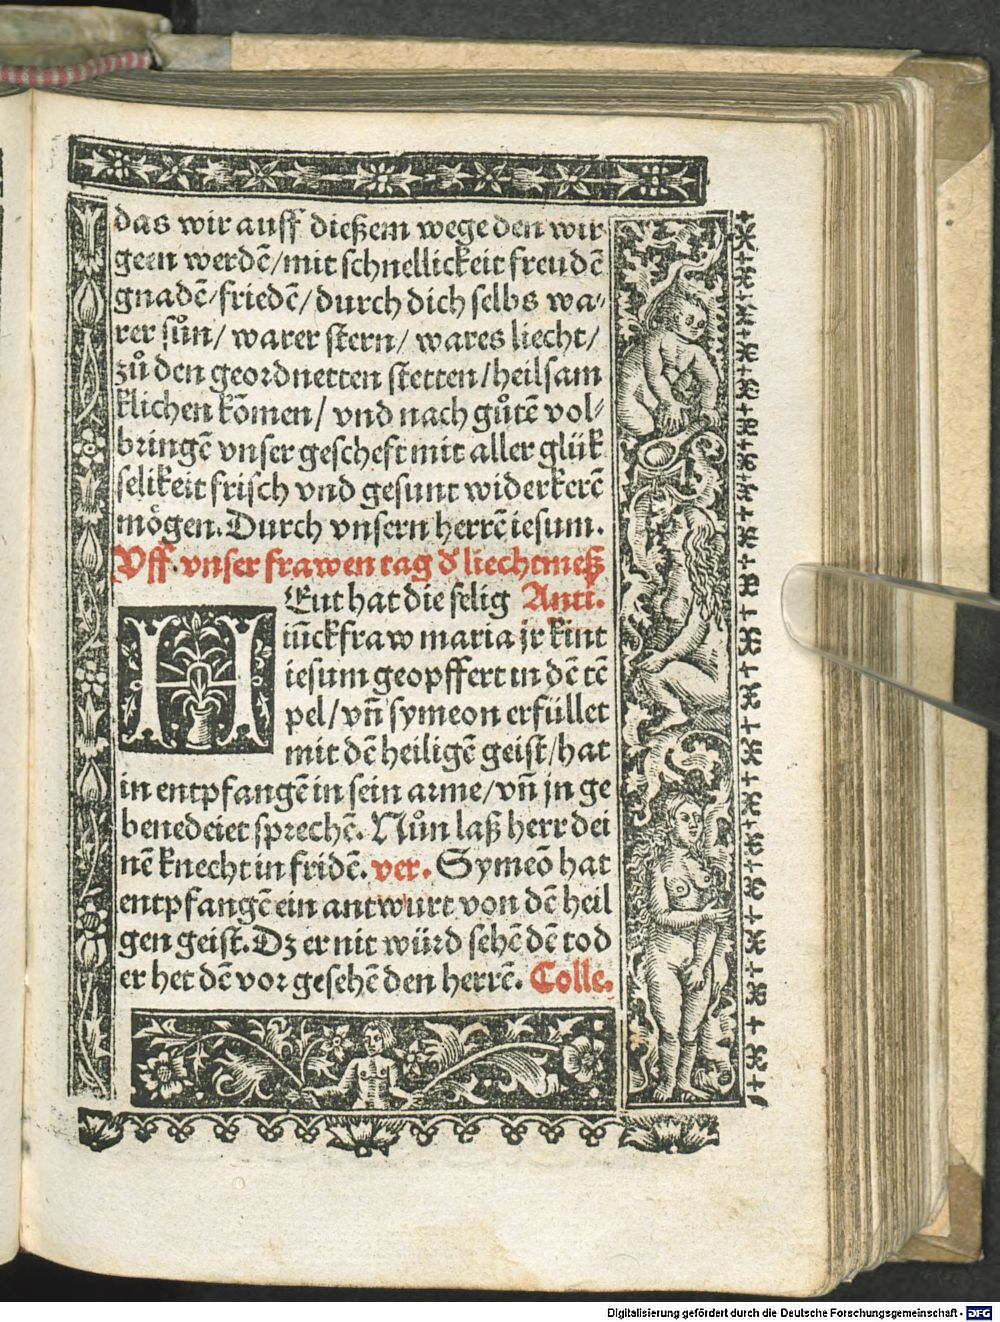 das wir auff dießem wege den wir
geen werdē/mit schnellickeit freudē
gnadē/friedē/durch dich selbs wa⸗
rer sůn/ warer stern/ wares liecht/
zů den geordnetten stetten/heilsam
klichen kōmen/ vnd nach gůtē vol⸗
bringē vnser gescheft mit aller glük
selikeit frisch vnd gesunt widerkerē
mögen. Durch vnsern herrē iesum.
Vff vnser frawen tag d̄ liechtmeß
HEut hat die selig Anti.
iūckfraw maria jr kint
iesum geopffert in dē tē
pel/vn̄ symeon erfüllet
mit dē heiligē geist/hat
in entpfangē in sein arme/vn̄ jn ge
benedeiet sprechē. Nůn laß herr dei
nē knecht in fridē. ver. Symeō hat
entpfangē ein antwurt von dē heil
gen geist. Dz er nit würd sehē dē tod
er het dē vor gesehē den herrē. Colle.
Digitalisierung gefördert durch die Deutsche Forschungsgemeinschaft - DFG